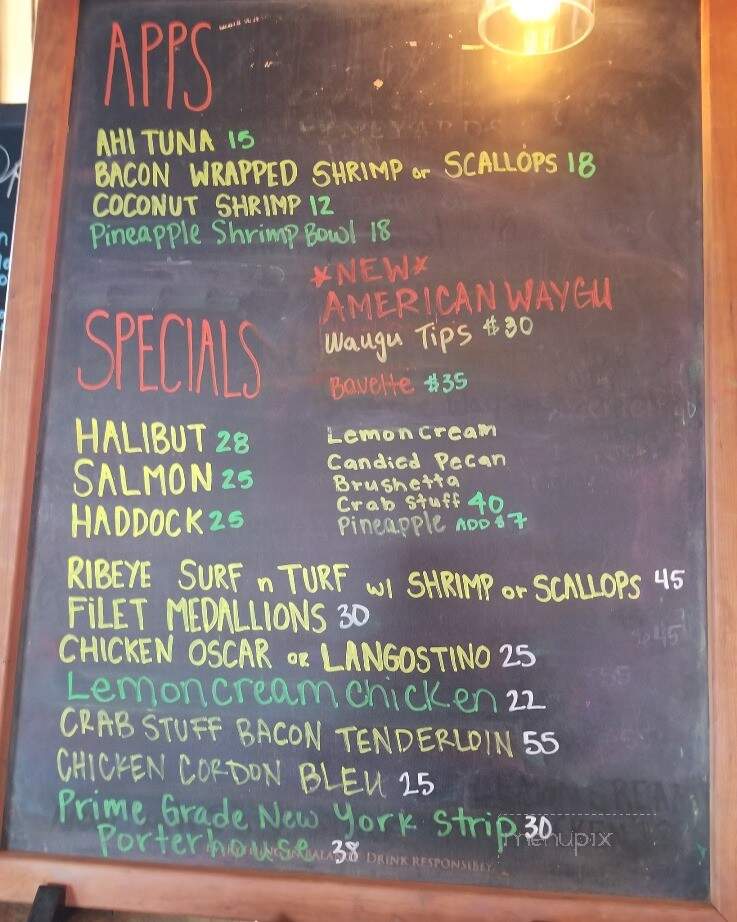 APPS
AHI TUNA 15
BACON WRAPPED SHRIMP or SCALLOPS 18
COCONUT SHRIMP 12
Pineapple Shrimp Bowl 18
*NEW*
AMERICAN WAYGU
Waugu Tips $30
Bavette $35
SPECIALS
HALIBUT 28
SALMON 25
HADDOCK 25
Lemon cream
Candied Pecan
Brushetta
Crab Stuff 40
Pineapple ADD $7
RIBEYE SURF n TURF w/ SHRIMP or SCALLOPS 45
FILET MEDALLIONS 30
CHICKEN OSCAR or LANGOSTINO 25
Lemon cream chicken 22
CRAB STUFF BACON TENDERLOIN 55
CHICKEN CORDON BLEU 25
Prime Grade New York Strip 30
Porterhouse 38
DRINK RESPONSIBLY
menupix